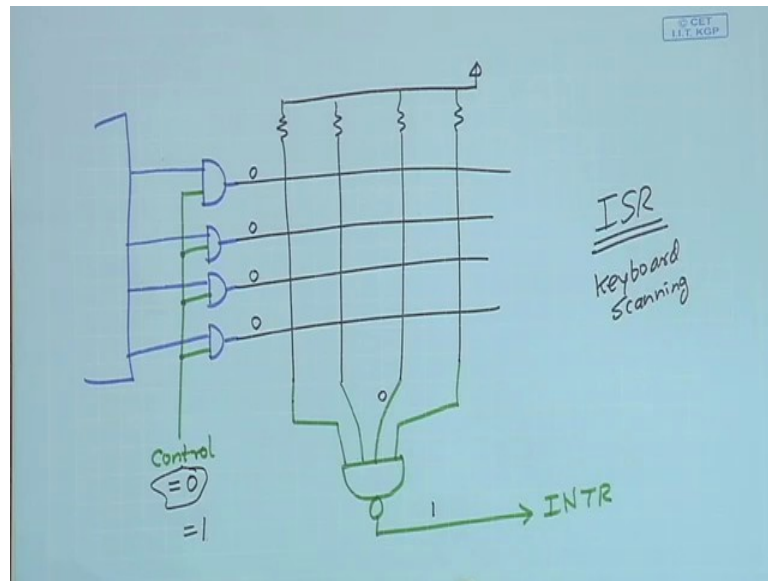 © CET
I.I.T. KGP
0
0
0
0
ISR
Keyboard
Scanning
0
Control
=0
=1
1
INTR